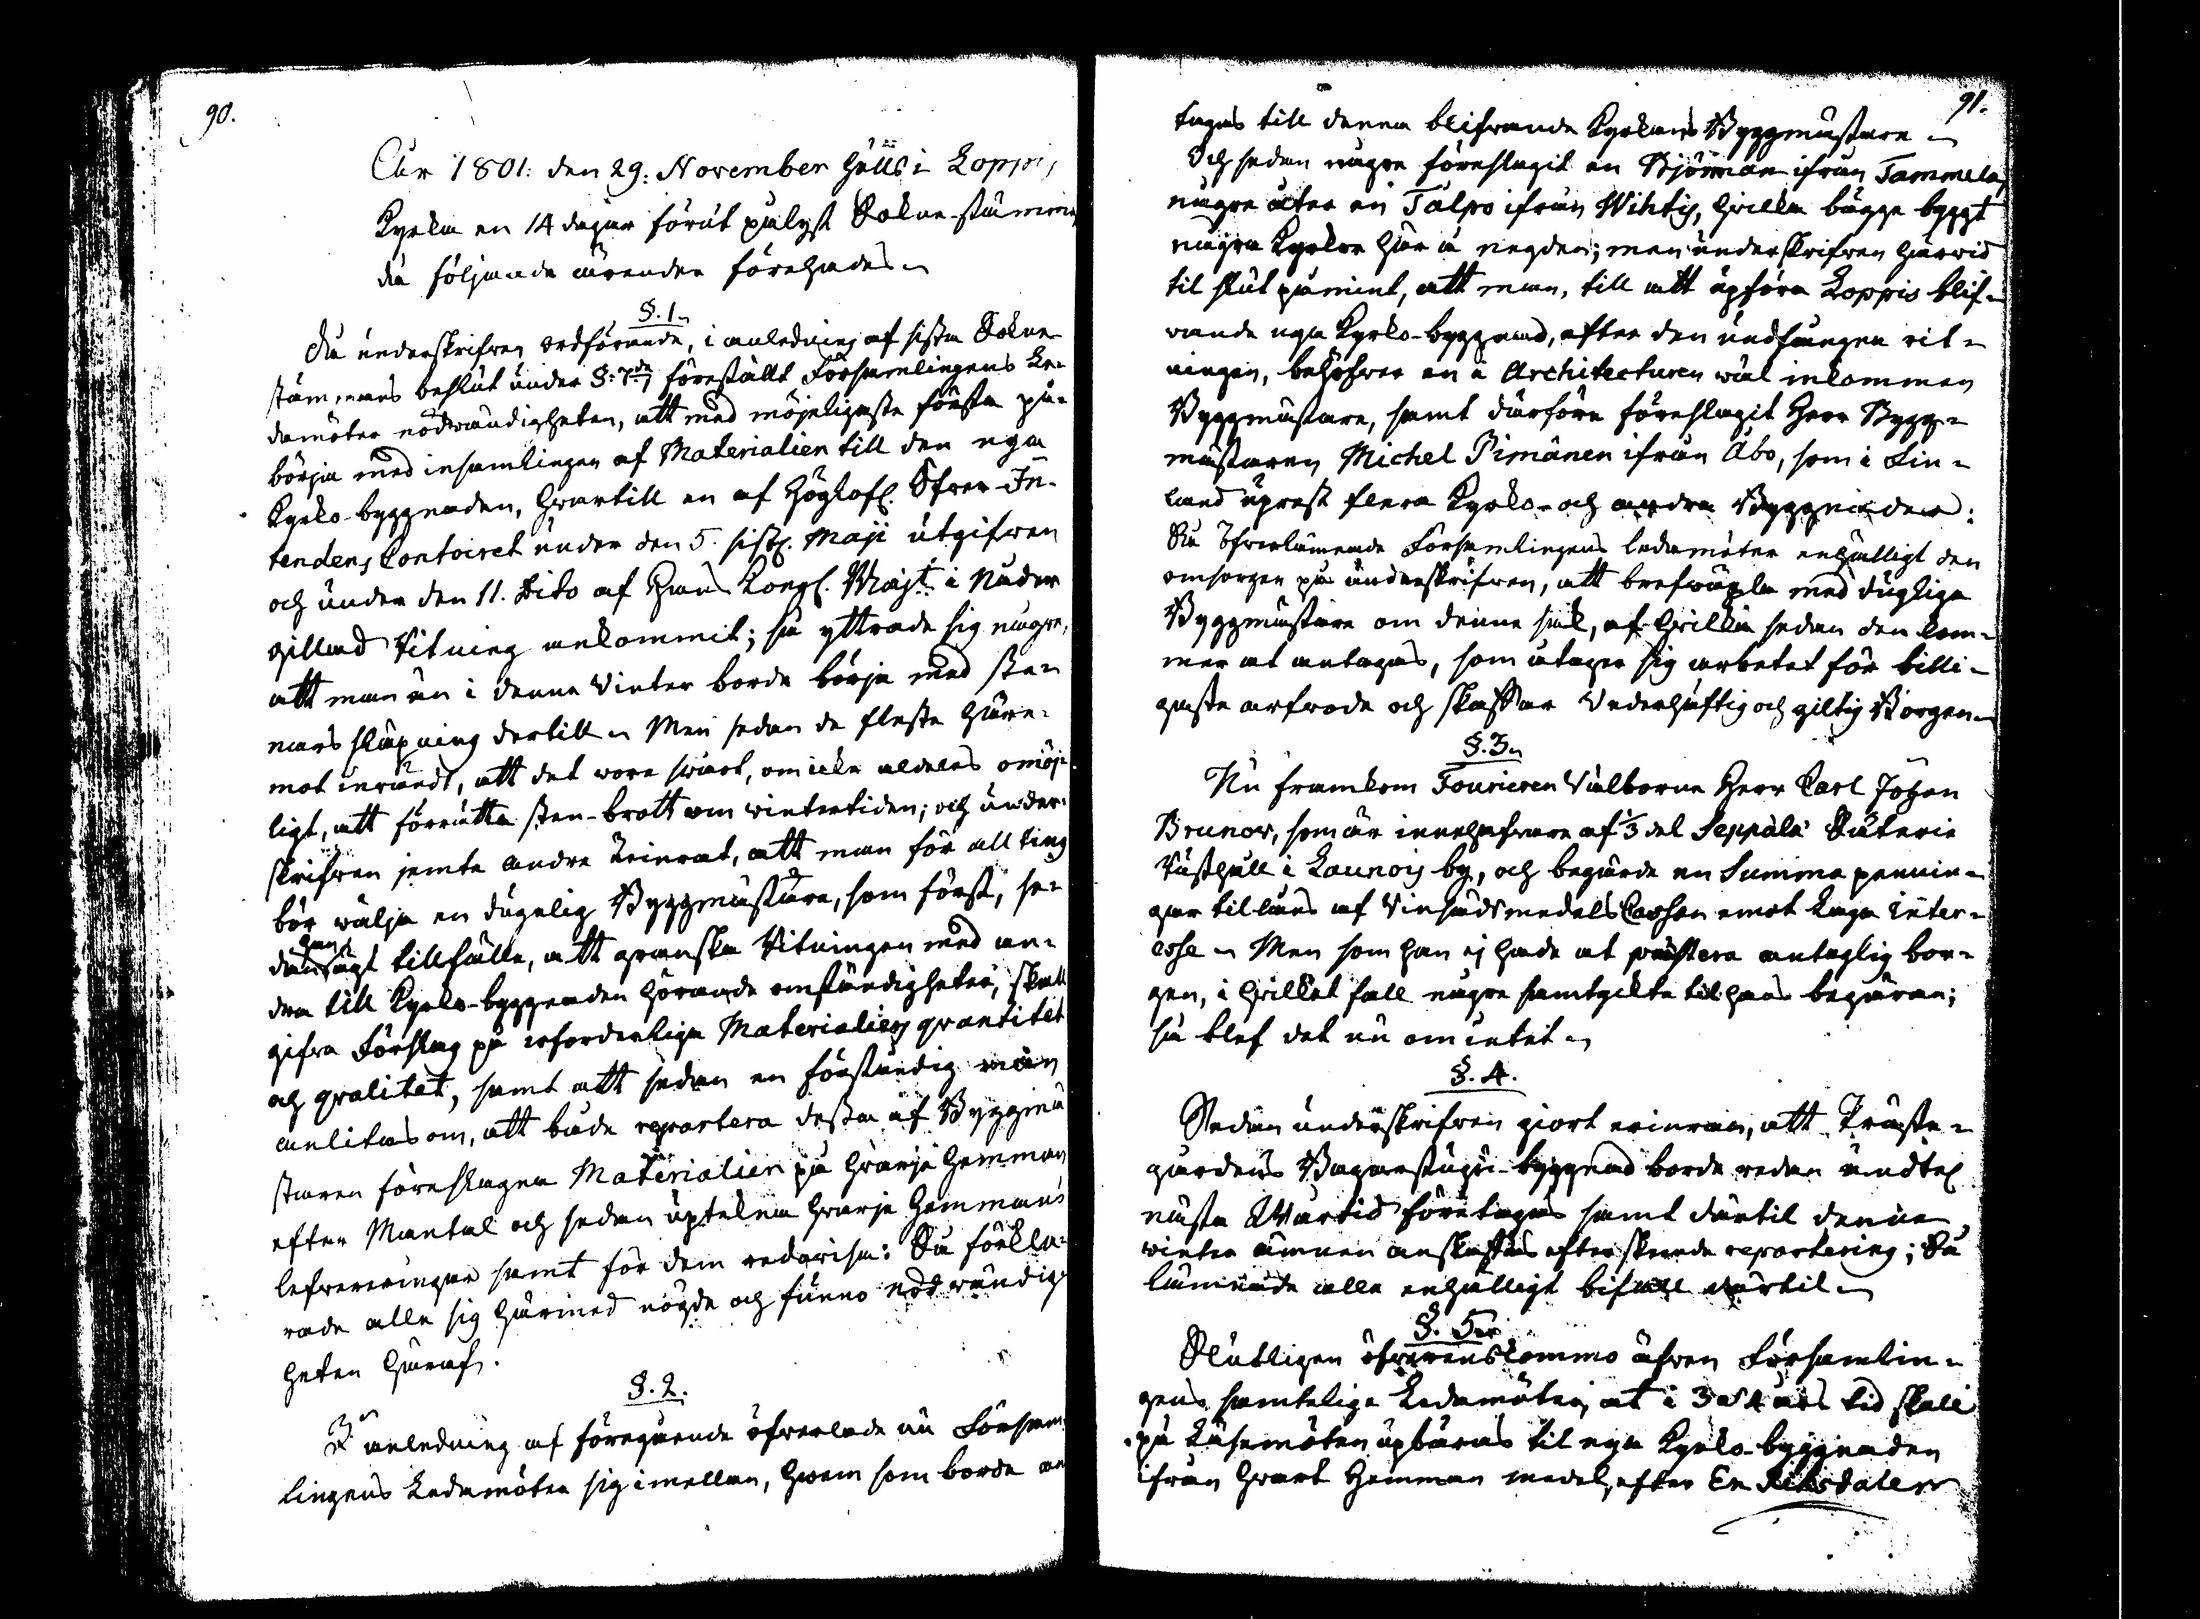 90.
Åhr 1801: den 29. November hölls i Loppis
Kyrka en 14 dagar förut pålyst Sokne-stämma
då följande ärenden förehades.
§. 1.
Då underskrifven ordförande, i anledning af sista Sokne
stämmans beslut under §: 7de föreställt Församlingens Le-
damöter nödvändigheten, att med möjeligaste första på-
börja med insamlingen af Materialien till den nya
Kyrko-byggnaden, hvartill en af Höglofl. Öfver-In-
tendens Contoiret under den 5. sistl. Maji utgifven
och under den 11. dito af Hans Kongl. Maj:t i Nåder
gillad Ritning ankommit; så yttrade sig någre,
att man än i denna Vinter borde börja med ste-
nars släpning dertill. Men sedan de fleste häre-
mot invändt, att det vore svårt, om icke aldeles omöj-
ligt, att förrätta sten-brott om vintertiden; och under-
skrifven jemte andre erinrat, att man för all ting
bör välja en dugelig Byggmästare, som först, se-
dan han ägt tillfälle, att granska Ritningen med an-
dra till Kyrko-byggnaden hörande omständigheter, skall
gifva Förslag på erforderliga Materialiers qvantitet
och qvalitet, samt att sedan en förståndig man
anlitas om, att både repartera dessa af Byggmä
staren föreslagna Materialier på hvarje Hemman
efter Mantal och sedan uptekna hvarje Hemmans
lefvereringar samt för dem redovisa: Så förkla-
rade alla sig härmed nögde och funno nödvändig-
heten häraf.
§. 2.
I anledning af föregående öfverlade nu Försam
lingens Ledamöter sig imellan, hvem som borde an
91.
tagas till denna blifvande Kyrkans Byggmästare.
Och sedan någre föreslagit en Björkman ifrån Tammela,
någre åter en Talpo ifrån Wihtis, hvilka bägge byggt
någre Kyrkor här å negden; men underskrifven härvid
til slut påmint, att man, till att upföra Loppis blif-
vande nya Kyrko-byggnad, efter den undfångna rit-
ningen, behöfver en i Architecturen väl inkommen
Byggmästare, samt därföre föreslagit Herr Bygg-
mästaren Michel Pimänen ifrån Åbo, som i Fin-
land uprest flera Kyrko- och andra Byggnader:
Så Öfverlämnade Församlingens ledamöter enhälligt den
omsorgen på underskrifven, att brefväxla med dugliga
Byggmästare om denna sak, af hvilka sedan den kom-
mer at antagas, som åtager sig arbetet för billi-
gaste arfvode och skaffar Vederhäftig och giltig Borgen.
§. 3.
Nu framkom Fourieren Välborne Herr Carl Johan
Brunow, som är innehafvare af 1/3 del Seppälä Säterie
Rusthåll i Launois by, och begärde en Summa pennin-
gar till låns af Vinhåds medels Cassan emot laga Inter-
esse. Men som han ej hade at præstera antaglig bor-
gen, i hvilket fall någre samtyckte til hans begäran;
så blef det nu om intet.
§. 4.
Sedan underskrifven giort erinran, att Præste-
gårdens Bagarstugu-byggnad borde redan
nästa Vårtid företagas samt därtil denna
vinter ämnen anskaffas efter skeende repartering; Så
lämnade alla enhälligt bifall därtil.
§. 5.
Slutligen öfverenskommo äfven Församlin-
gens samtelige Ledamöter, at i 3 a 4 års tid skall
på Läsemöten upbäras til nya Kyrko-byggnaden
ifrån hvart Hemman medel, efter En Riksdaler